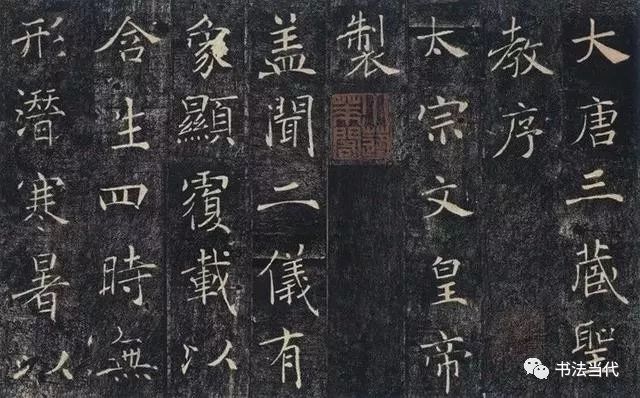 大唐三藏聖
教序
太宗文皇帝
製
小蓬萊閣
盖聞二儀有
象顯覆載以
含生四時無
形潛寒暑以
书法当代